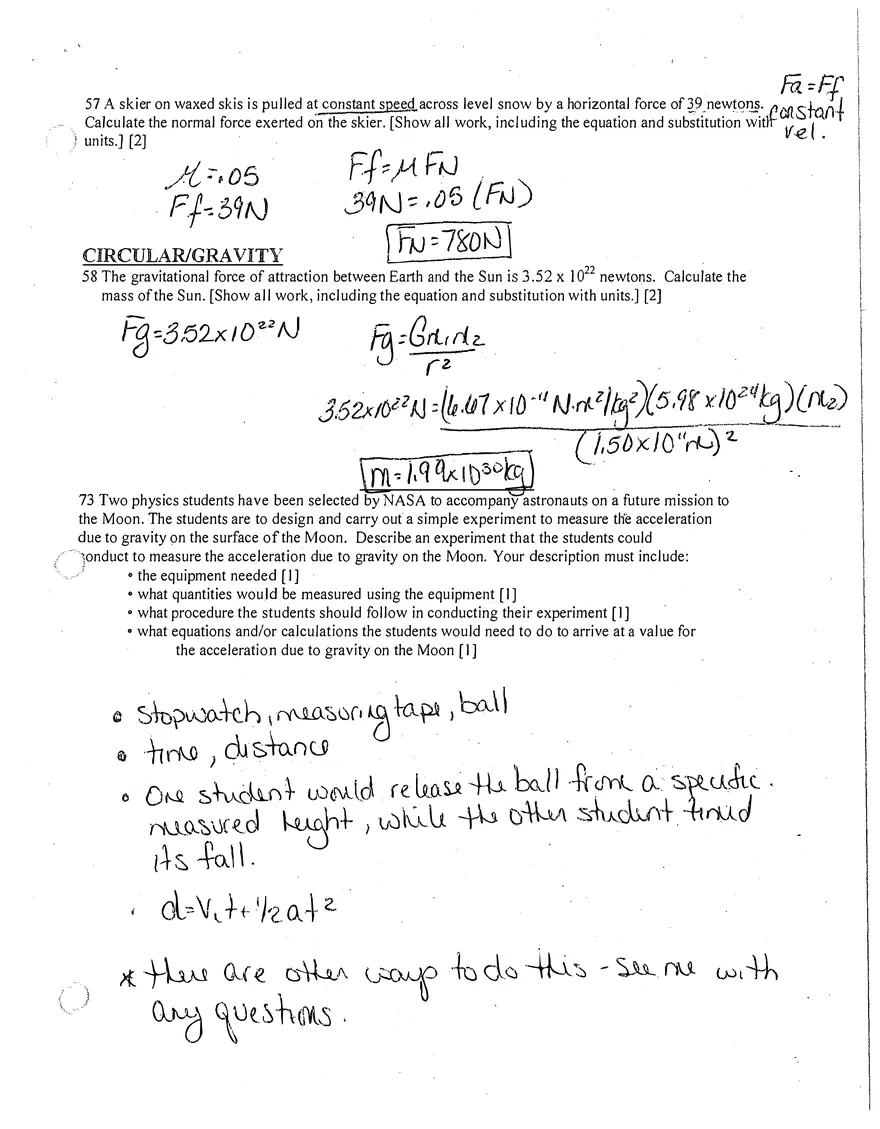 Fa = Ff
constant
vel.
57 A skier on waxed skis is pulled at constant speed across level snow by a horizontal force of 39 newtons.
Calculate the normal force exerted on the skier. [Show all work, including the equation and substitution with
units.] [2]
μ=.05
Ff=μFN
Ff=39N
39N=.05(FN)
FN=780N
CIRCULAR/GRAVITY
58 The gravitational force of attraction between Earth and the Sun is 3.52 x 10²² newtons. Calculate the
mass of the Sun. [Show all work, including the equation and substitution with units.] [2]
Fg=3.52x10²²N
Fg=Gm₁m₂
r²
3.52x10²²N=(6.67x10⁻¹¹N·m²/kg²)(5.98x10²⁴kg)(m₂)
(1.50x10¹¹m)²
m=1.99x10³⁰kg
73 Two physics students have been selected by NASA to accompany astronauts on a future mission to
the Moon. The students are to design and carry out a simple experiment to measure the acceleration
due to gravity on the surface of the Moon. Describe an experiment that the students could
conduct to measure the acceleration due to gravity on the Moon. Your description must include:
• the equipment needed [1]
• what quantities would be measured using the equipment [1]
• what procedure the students should follow in conducting their experiment [1]
• what equations and/or calculations the students would need to do to arrive at a value for
the acceleration due to gravity on the Moon [1]
• stopwatch, measuring tape, ball
• time, distance
• One student would release the ball from a specific
measured height, while the other student timed
its fall.
• d=Vᵢt+½at²
* there are other ways to do this - see me with
any questions.